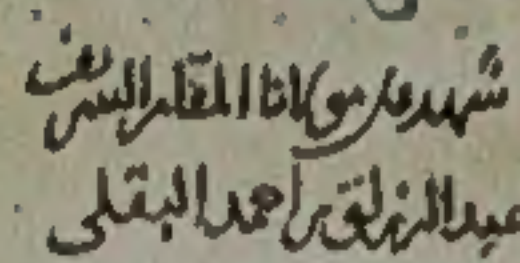 شهد على مولانا المقر الشريف
عبد الرزاق بن احمد البقلى